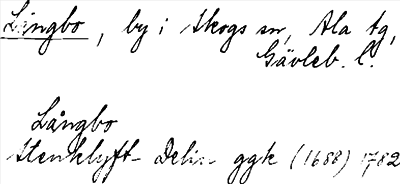 Lingbo, by i Skogs sn, Ala tg,
Gävleb. l.
Långbo
Stenklyft- Delin ggk (1688) 1782